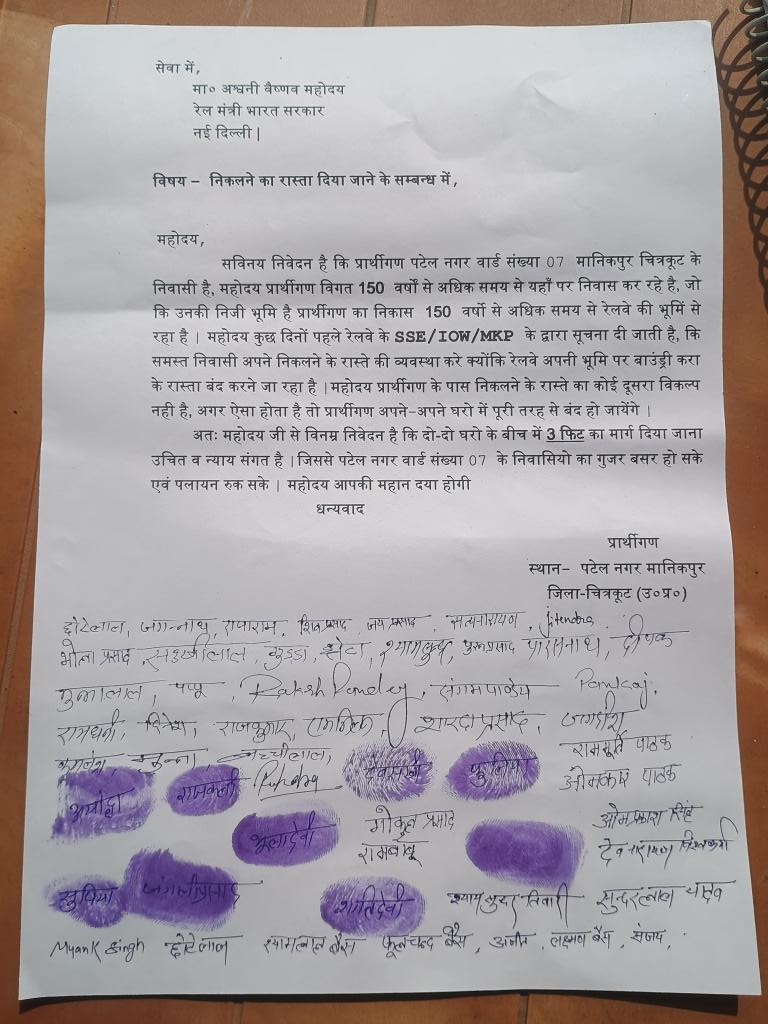 सेवा में,
मा० अश्वनी वैष्णव महोदय
रेल मंत्री भारत सरकार
नई दिल्ली |
विषय – निकलने का रास्ता दिया जाने के सम्बन्ध में,
महोदय,
सविनय निवेदन है कि प्रार्थीगण पटेल नगर वार्ड संख्या 07 मानिकपुर चित्रकूट के
निवासी है, महोदय प्रार्थीगण विगत 150 वर्षों से अधिक समय से यहाँ पर निवास कर रहे है, जो
कि उनकी निजी भूमि है प्रार्थीगण का निकास 150 वर्षो से अधिक समय से रेलवे की भूमिं से
रहा है | महोदय कुछ दिनों पहले रेलवे के SSE/IOW/MKP के द्वारा सूचना दी जाती है, कि
समस्त निवासी अपने निकलने के रास्ते की व्यवस्था करे क्योंकि रेलवे अपनी भूमि पर बाउंड्री करा
के रास्ता बंद करने जा रहा है | महोदय प्रार्थीगण के पास निकलने के रास्ते का कोई दूसरा विकल्प
नही है, अगर ऐसा होता है तो प्रार्थीगण अपने-अपने घरो में पूरी तरह से बंद हो जायेंगे |
अतः महोदय जी से विनम्र निवेदन है कि दो-दो घरो के बीच में 3 फिट का मार्ग दिया जाना
उचित व न्याय संगत है | जिससे पटेल नगर वार्ड संख्या 07 के निवासियो का गुजर बसर हो सके
एवं पलायन रुक सके | महोदय आपकी महान दया होगी
धन्यवाद
प्रार्थीगण
स्थान– पटेल नगर मानिकपुर
जिला-चित्रकूट (उ०प्र०)
छोटेलाल, जगन्नाथ, राजाराम, शिव प्रसाद, जय प्रसाद, सत्यनारायण, Jitendra
भोला प्रसाद, दीपक
मुन्नालाल, पप्पू, Rakesh Pandey, संगम पाण्डेय Pankaj,
रामधनी, राजकुमार, शारदा प्रसाद, जगदीश
राममूर्ति पाठक
ओमकार पाठक
राजकली फूलमिया
भूलादेवी गोकुल प्रसाद ओमप्रकाश सिंह
रामबाबू देव नारायण विश्वकर्मा
जंगली प्रसाद शान्तिदेवी श्याम सुन्दर तिवारी सुन्दरलाल यादव
Myank Singh छोटेलाल श्यामलाल बैस फूलचन्द बैस, अजीत, लक्ष्मण बैस, संजय,